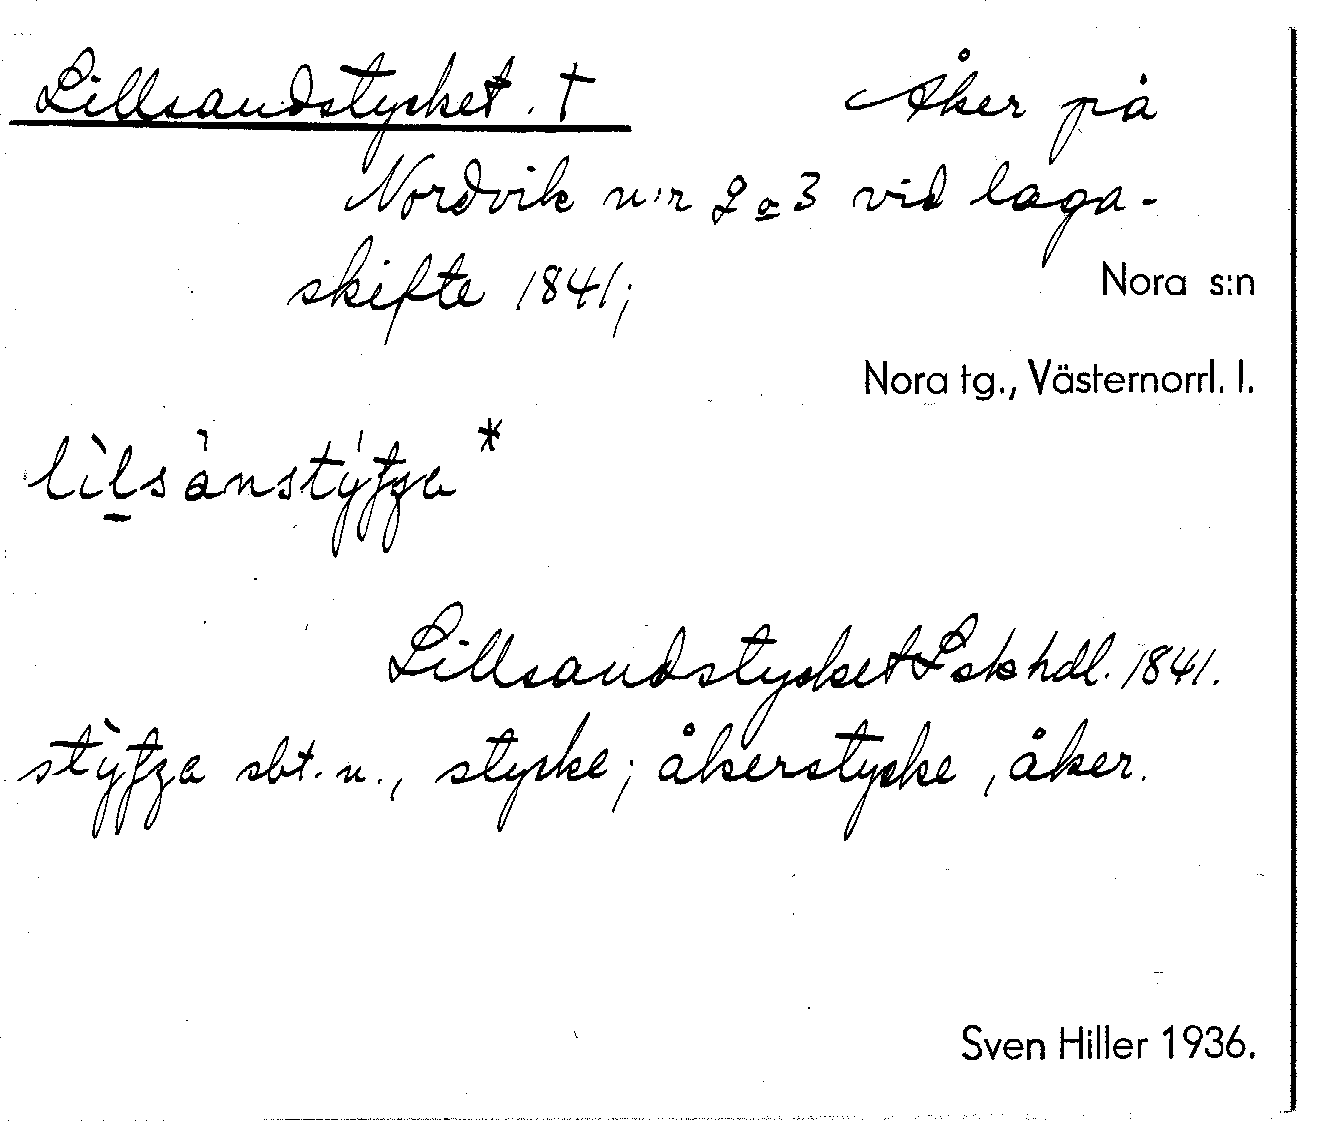 Lillsandstycket. † Åker på
Nordvik n:r 2 o 3 vid laga-
skifte 1841;
Nora s:n
Nora tg., Västernorrl. l.
Lillsandstycket Lskhdl. 1841.
sbt. n., stycke; åkerstycke, åker.
Sven Hiller 1936.